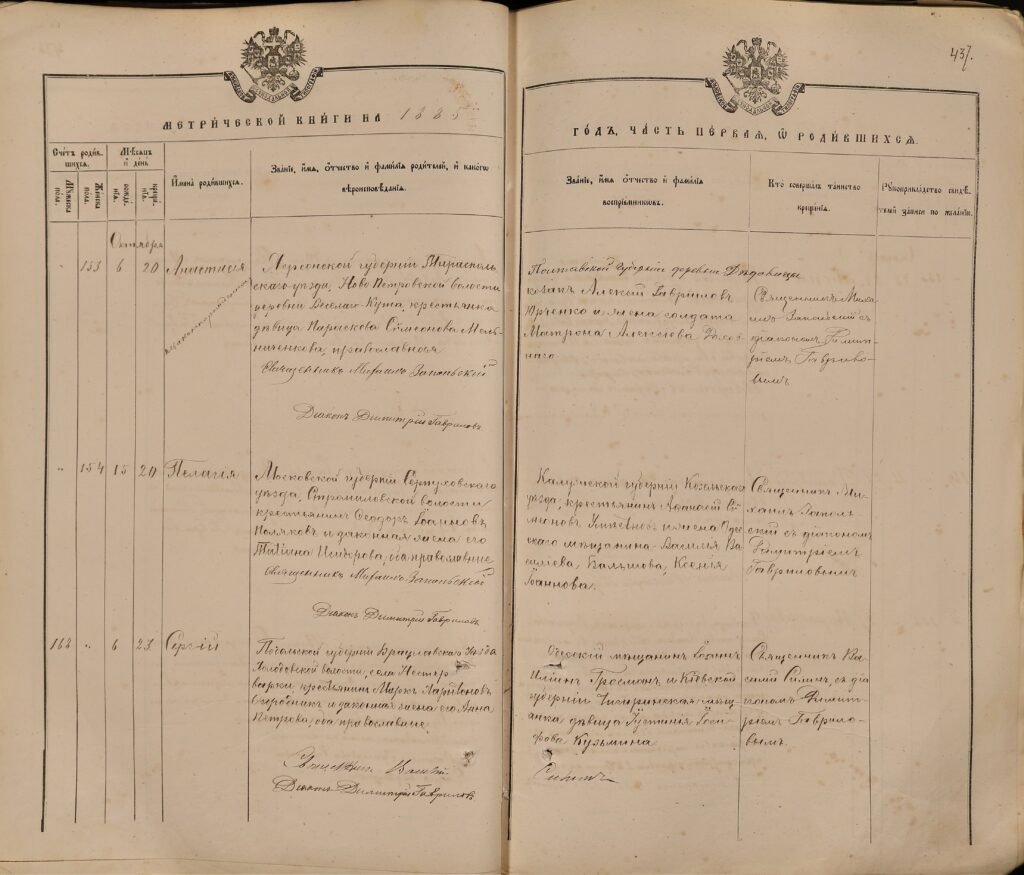 437.
МЕТРИ́ЧЕСКОЙ КНИ́ГИ НА 1885й
ГО́ДЪ, ЧА́СТЬ ПЕ́РВАЯ, Ѡ РОДИ́ВШИХСѦ.
Сче́тъ роди́вшихся.
Мѣ́сяцъ и̑ де́нь
И̑мена̀ роди́вшихся.
Зва́нїе, и́мя, о́тчество и̑ фами́лїѧ роди́телей, и̑ како́гѡ
вѣроисповѣ́данїѧ.
Зва́нїе, и́мя о́тчество и̑ фами́лїѧ
воспрїе́мниковъ.
Кто̀ соверша́лъ та́инство
креще́нїѧ.
Рꙋкоприкла́дство свидѣ́
телей за́писи по жела́нїю.
Мꙋ́жеска по́ла.
Же́нска по́ла.
рожде́нїѧ.
креще́нїѧ.
Октября
" 153 6 20 Анастасія
незаконнорожденная
Херсонской губерніи Тирасполь
скаго уѣзда, Ново Петровской волости
деревни Веселаго-Кута, крестьянка
дѣвица Параскова Сѵмеонова Мель
ниченкова, православная
Священникъ Михаилъ Запольскій
Діаконъ Димитрій Гавриловъ
Полтавской губерніи деревни
козакъ Алексѣй Гавриловъ
Юрченко и жена солдата
Матрона Алексѣева
Священникъ Миха
илъ Запольскій съ
діакономъ Димит
ріемъ Гаврило-
вымъ
" 154 15 20 Пелагія
Московской губерніи Серпуховскаго
уѣзда, Стромиловской волости
крестьянинъ Ѳеодоръ Іоанновъ
Поляковъ и законная жена его
Татіана Исидорова, оба православные
Священникъ Михаилъ Запольскій
Діаконъ Димитрій Гавриловъ
Калужской губерніи Козельскаго
уѣзда, крестьянинъ Аѳанасій Си
моновъ и жена Одес
скаго мѣщанина Василія Ва
сильева, Балашова, Ксенія
Іоаннова.
Священникъ Ми-
хаилъ Заполь-
скій съ діакономъ
Димитріемъ
Гавриловымъ
168 " 6 23 Сергій
Подольской губерніи Брацлавскаго уѣзда
волости, села Нестер
варки, крестьянинъ Маркъ Ларіоновъ
Огородникъ и законная жена его Анна
Петрова, оба православные
Священникъ Василій
Діаконъ Димитрій Гавриловъ
Одесскій мѣщанинъ Іоаннъ
Гросманъ, и Кіевской
губерніи Чигиринская мѣщ
анка дѣвица Іустинія Іоси-
фова Кузьмина
Священникъ Ва
силій Силинъ, съ діа
кономъ Димит-
ріемъ Гаврило-
вымъ.
Силинъ